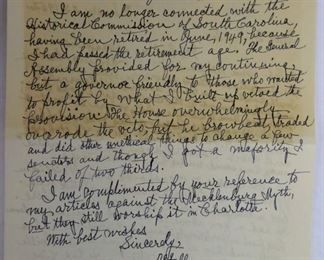 I am no longer connected with the
Historical Commission of South Carolina,
having been retired in June, 1949, because
I had passed the retirement age. The General
Assembly provided for my continuing,
but a governor friendly to those who wanted
to profit by what I built up vetoed the
provision. The House overwhelmingly
overrode the veto, but he browbeat, traded
and did other unethical things to change a few
senators and though I got a majority I
failed of two thirds.
I am complimented by your reference to
my articles against the Mecklenburg Myth,
but they still worship it in Charlotte.
With best wishes
Sincerely,